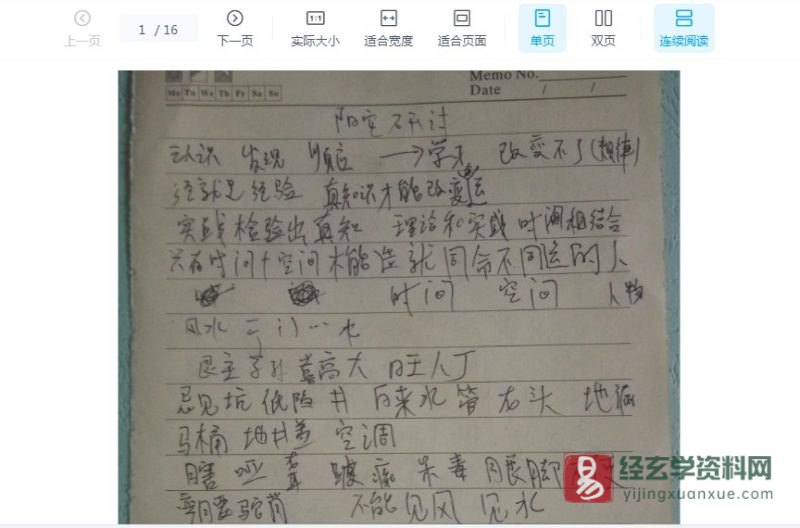 上一页 1 / 16 下一页 实际大小 适合宽度 适合页面 单页 双页 连续阅读
Memo No.
Mo Tu We Th Fr Sa Su Date / /
阳宅研讨
认识 发现 顺应 → 学习 改变不了(规律)
经就是经验 真知识才能改变运
实践检验出真知 理论和实践时间相结合
只有时间+空间才能造就同命不同运的人
时间 空间 人物
风水 水
艮主子孙喜高大 旺人丁
忌见坑 低陷 井 自来水管 石头 地漏
马桶 地井盖 空调
瞎 哑 聋 跛 腰脚
弯腰驼背 不能见风 见水
易 经玄学资料网
yijingxuanxue.com